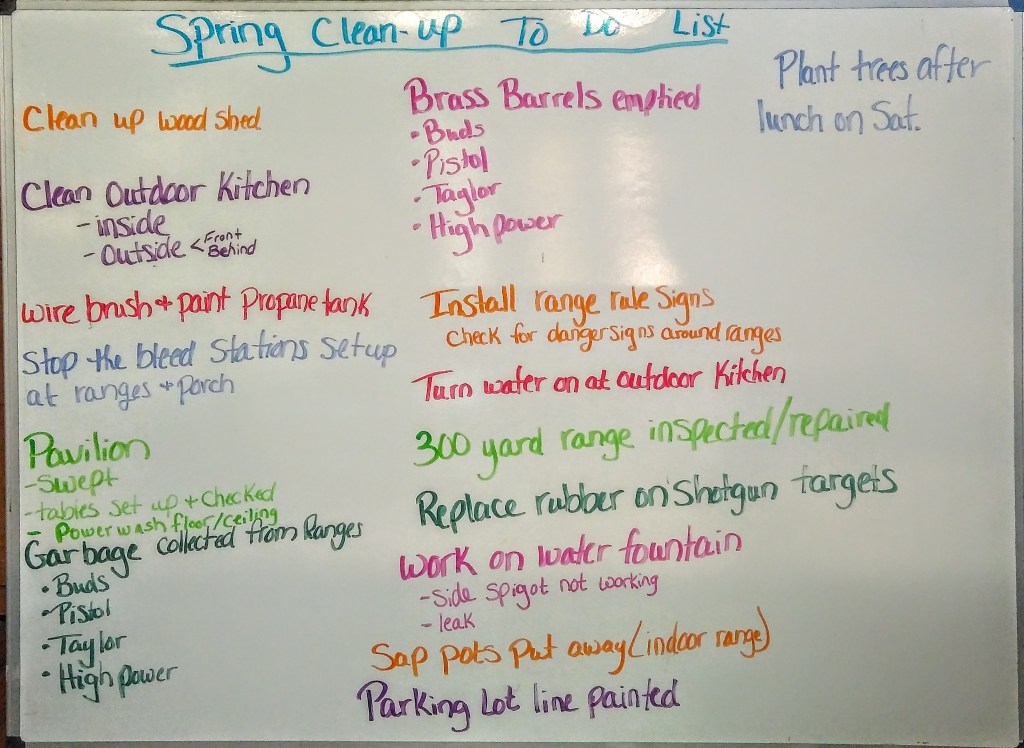 Spring Clean-up To Do List
Clean up wood shed
Clean Outdoor Kitchen
- inside
- Outside < Front
Behind
wire brush + paint Propane tank
Stop the bleed Stations setup
at ranges + porch
Pavilion
- Swept
- tables set up + Checked
- Power wash floor/ceiling
Garbage collected from Ranges
• Buds
• Pistol
• Taylor
• High power
Brass Barrels emptied
• Buds
• Pistol
• Taylor
• High power
Install range rule Signs
check for danger signs around ranges
Turn water on at outdoor Kitchen
300 yard range inspected/repaired
Replace rubber on Shotgun targets
work on water fountain
- Side spigot not working
- leak
Sap pots put away (indoor range)
Parking Lot line painted
Plant trees after
lunch on Sat.